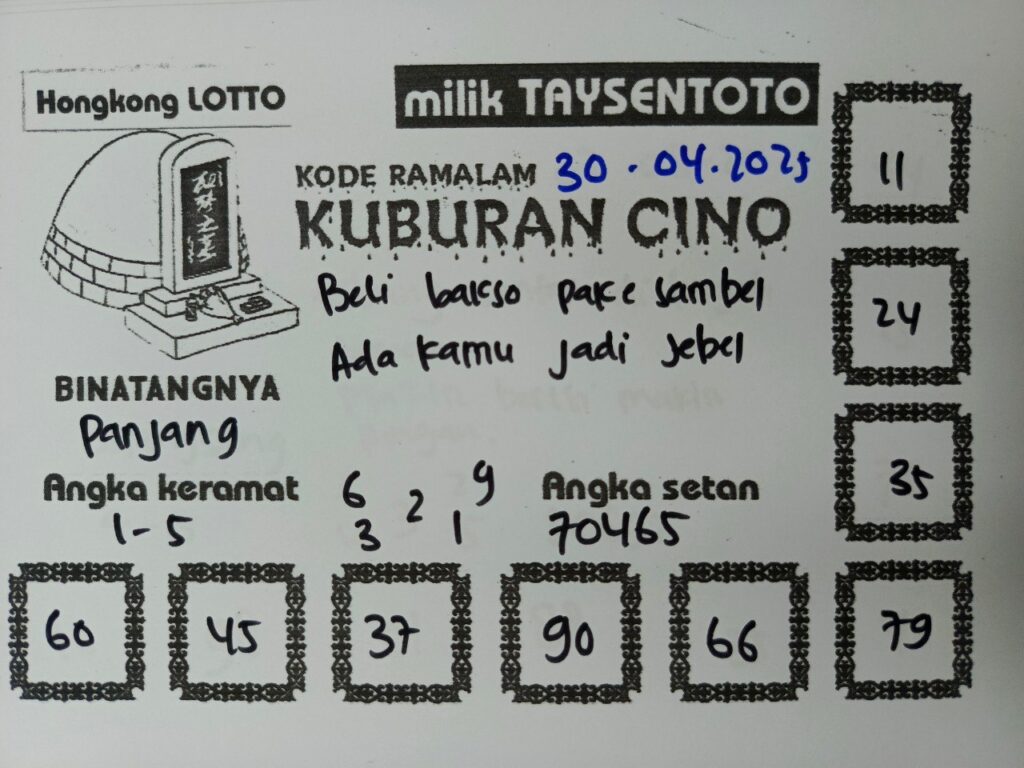 Hongkong LOTTO
milik TAYSENTOTO
KODE RAMALAM 30.04.2025
KUBURAN CINO
Beli bakso pake sambel
Ada kamu jadi sebel
BINATANGNYA
Panjang
Angka keramat
1-5
6 2 9
3 1
Angka setan
70465
11
24
35
60 45 37 90 66 79